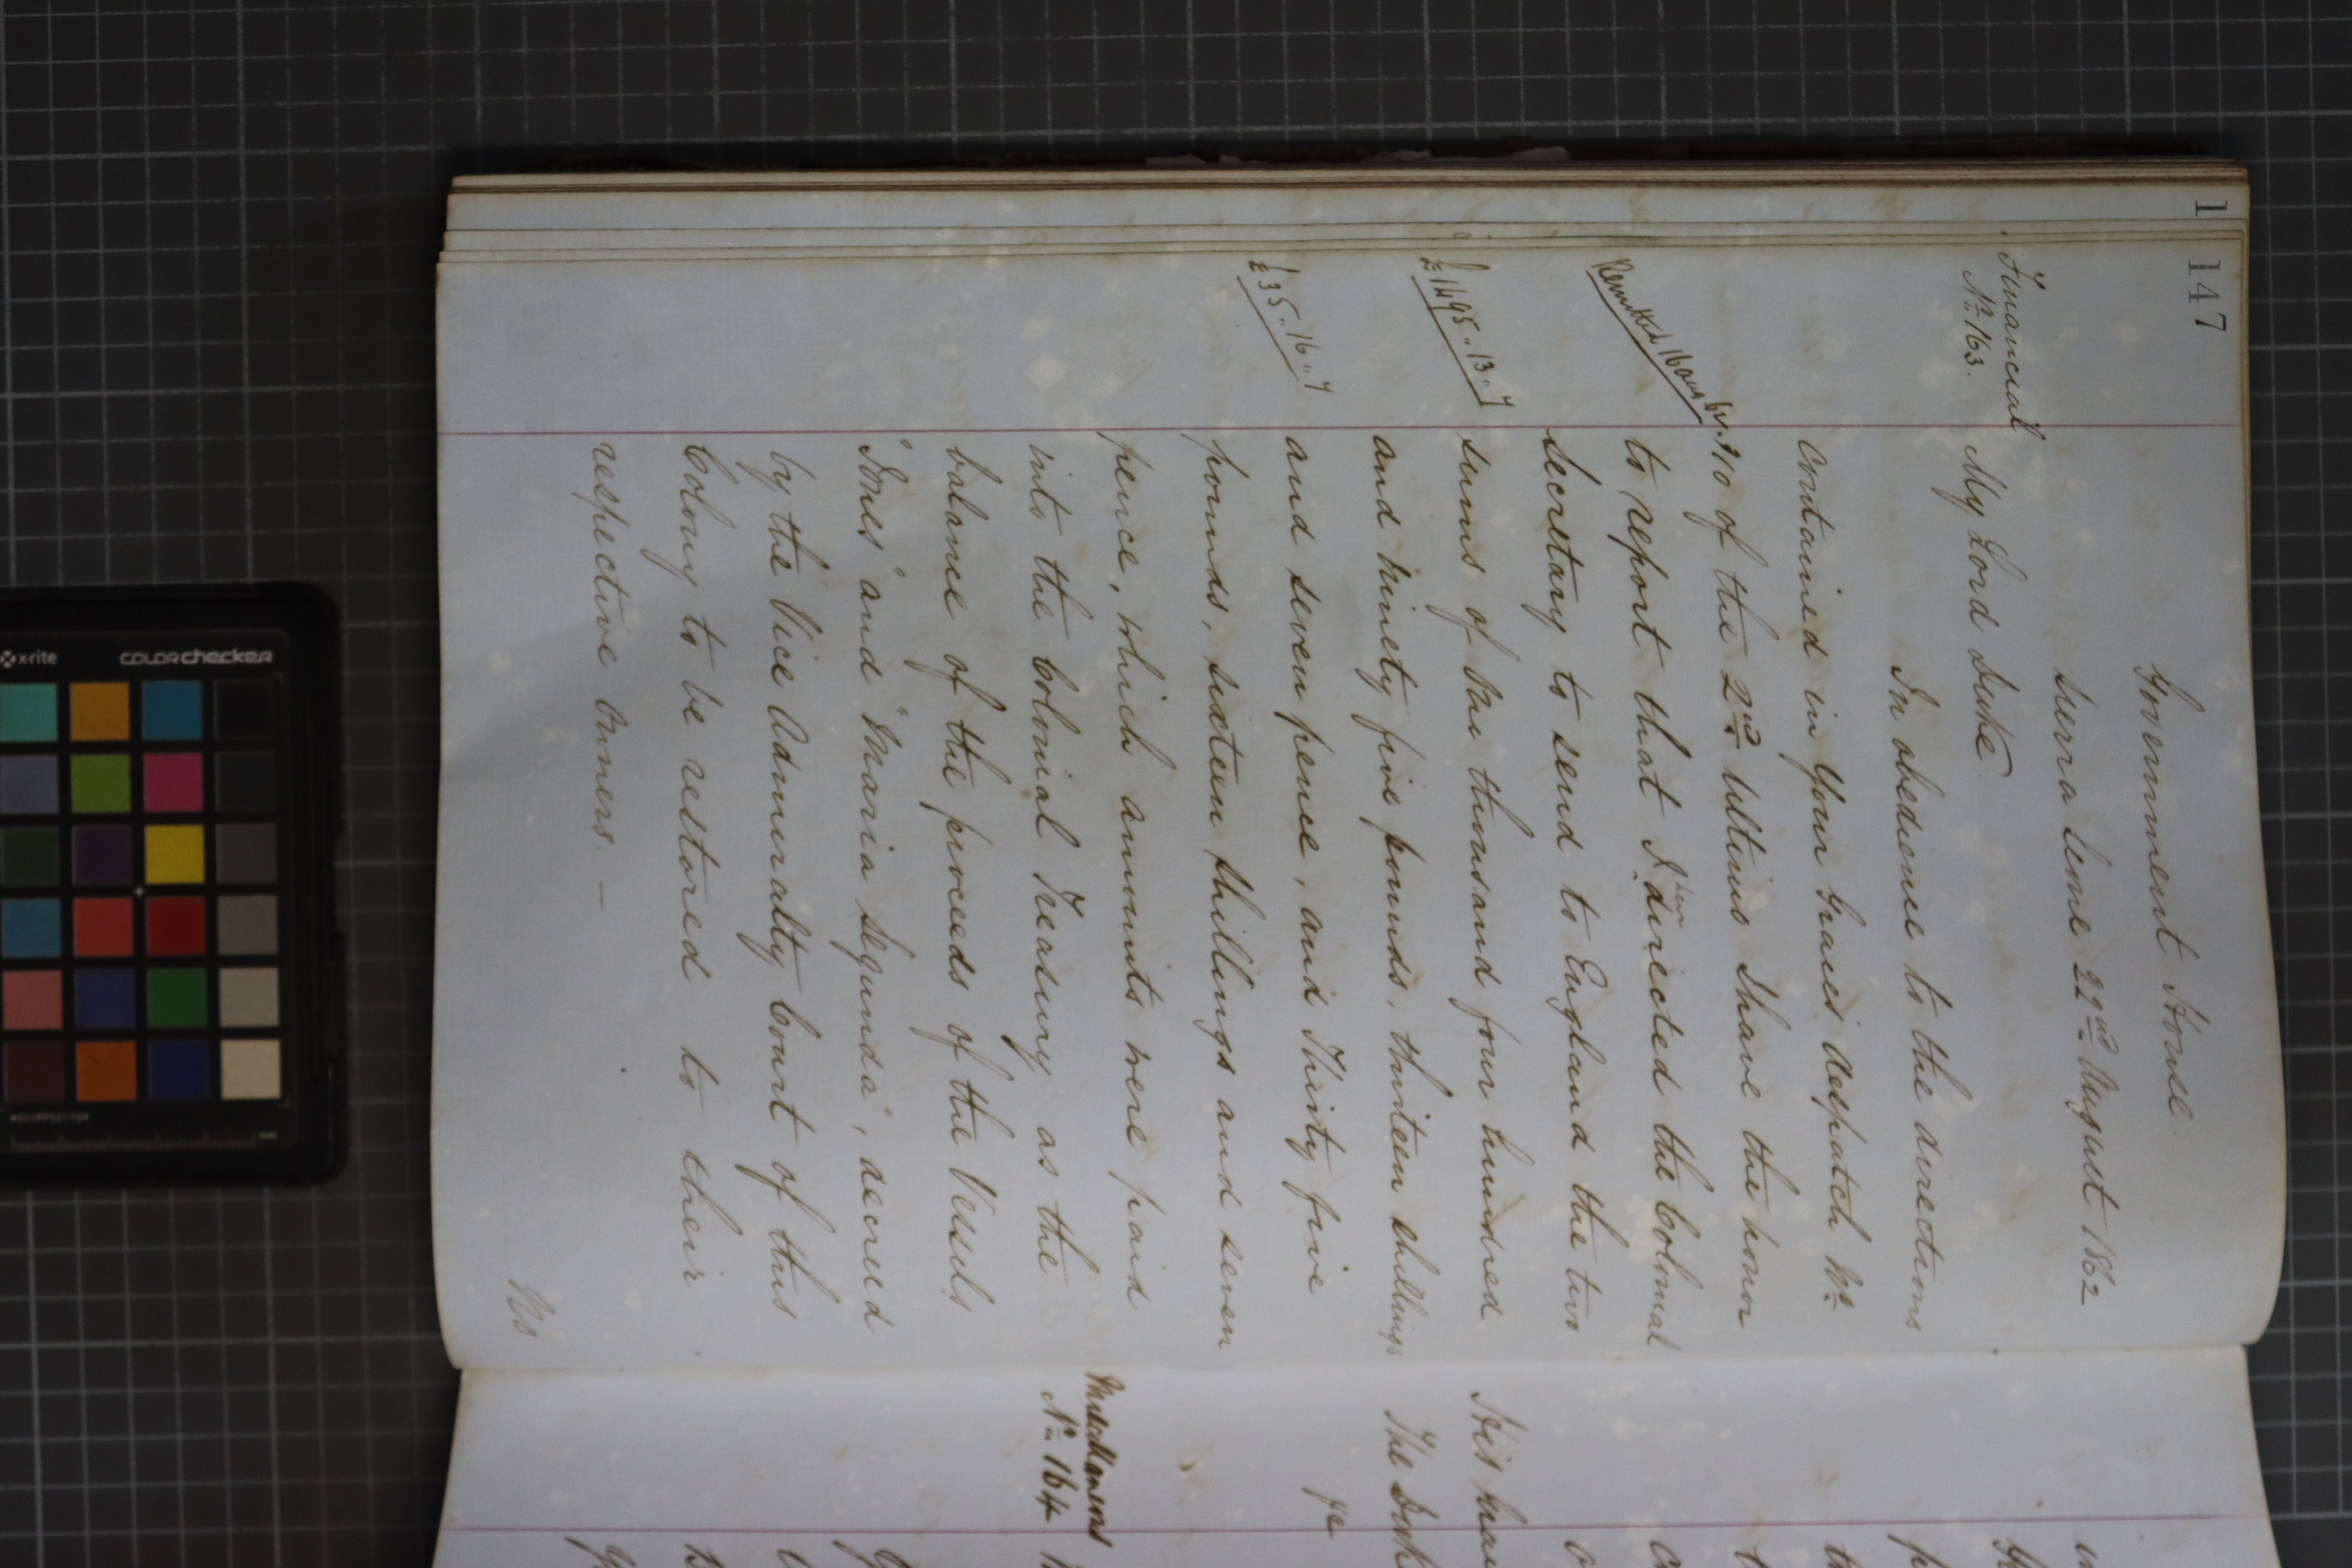 147
Government House
Sierra Leone 22nd August 1862
Financial
No. 163.
My Lord Duke
In obedience to the directions
contained in Your Graces despatch No.
210 of the 2nd Ultimo I have the honor
to report that I have directed the Colonial
Secretary to send to England the two
sums of One thousand four hundred
and ninety five pounds, thirteen shillings
and seven pence, and Thirty five
pounds, sixteen shillings and seven
pence, which amounts were paid
into the Colonial Treasury as the
balance of the proceeds of the Vessels
"Ines" and "Maria Segunda", decreed
by the Vice Admiralty Court of this
Colony to be restored to their
respective Owners. —
Remitted 16 Aug
£1495..13..7
£35..16..7
Miscellaneous
No. 164
His
The Duke
1
x-rite
colorchecker